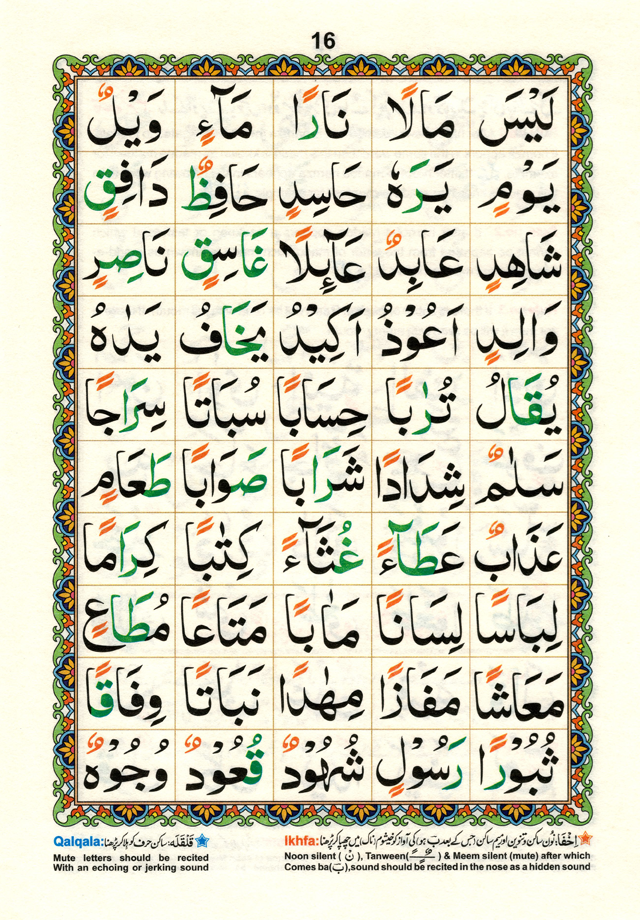 16
لَيْسَ مَالًا نَارًا مَآءٍ وَيْلٌ
يَوْمٍ يَرَهٗ حَاسِدٍ حَافِظٌ دَافِقٍ
شَاهِدٍ عَابِدٌ عَآئِلًا غَاسِقٍ نَاصِرٍ
وَالِدٍ اَعُوْذُ اَكِيْدُ يَخَافُ يَدٰهُ
يُقَالُ تُرٰبًا حِسَابًا سُبَاتًا سِرَاجًا
سَلٰمٌ شِدَادًا شَرَابًا صَوَابًا طَعَامٍ
عَذَابٌ عَطَآءً غُثَآءً كِتٰبًا كِرَامًا
لِبَاسًا لِسَانًا مَاٰبًا مَتَاعًا مُطَاعٍ
مَعَاشًا مَفَازًا مِهٰدًا نَبَاتًا وِفَاقًا
ثُبُوْرًا رَسُوْلٍ شُهُوْدٌ قُعُوْدٌ وُجُوْهٌ
اِخْفَا: نُون ساکن و تنوین اور میم ساکن (جس کے بعد ب ہو) کی آواز کو خیشوم (ناک) میں چھپا کر پڑھنا Ikhfa:
Noon silent (نْ), Tanween(ـًـٍـٌ) & Meem silent (mute) after which
Comes ba(ب),sound should be recited in the nose as a hidden sound
قَلْقَلَه: ساکن حرف کو ہلا کر پڑھنا Qalqala:
Mute letters should be recited
With an echoing or jerking sound